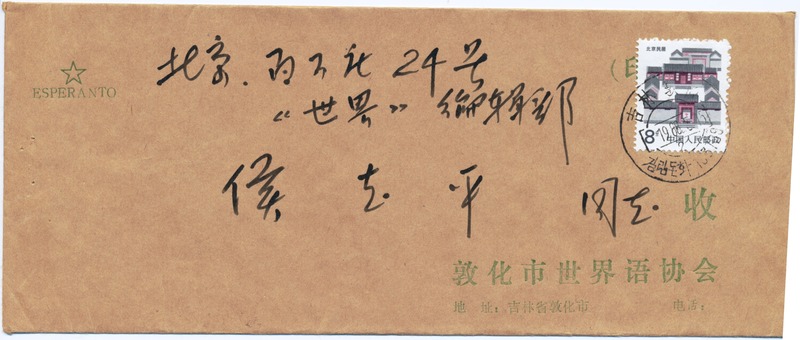 ESPERANTO
北京.百万庄24号
(印
《世界》编辑部
侯志平 同志 收
敦化市世界语协会
地 址：吉林省敦化市 电话：
北京民居
8 中国人民邮政
吉林